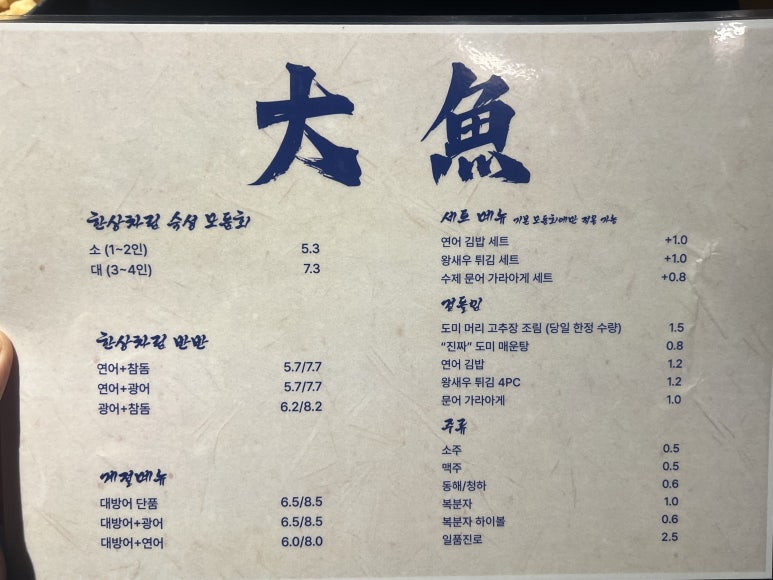 大魚
한상차림 숙성 모둠회
소 (1~2인) 5.3
대 (3~4인) 7.3
한상차림 반반
연어+참돔 5.7/7.7
연어+광어 5.7/7.7
광어+참돔 6.2/8.2
계절메뉴
대방어 단품 6.5/8.5
대방어+광어 6.5/8.5
대방어+연어 6.0/8.0
세트 메뉴 기본 모둠회에만 적용 가능
연어 김밥 세트 +1.0
왕새우 튀김 세트 +1.0
수제 문어 가라아게 세트 +0.8
곁들임
도미 머리 고추장 조림 (당일 한정 수량) 1.5
“진짜” 도미 매운탕 0.8
연어 김밥 1.2
왕새우 튀김 4PC 1.2
문어 가라아게 1.0
주류
소주 0.5
맥주 0.5
동해/청하 0.6
복분자 1.0
복분자 하이볼 0.6
일품진로 2.5